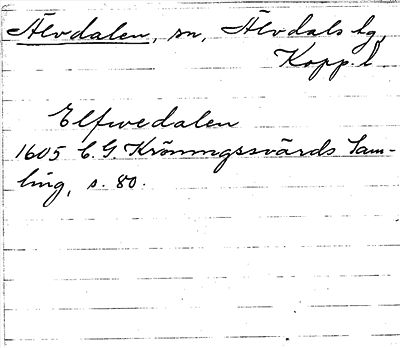 Älvdalen, sn, Älvdals tg,
Kopp. l
Elfwedalen
1605 C. G. Kröningssvärds Sam-
ling, s. 80.